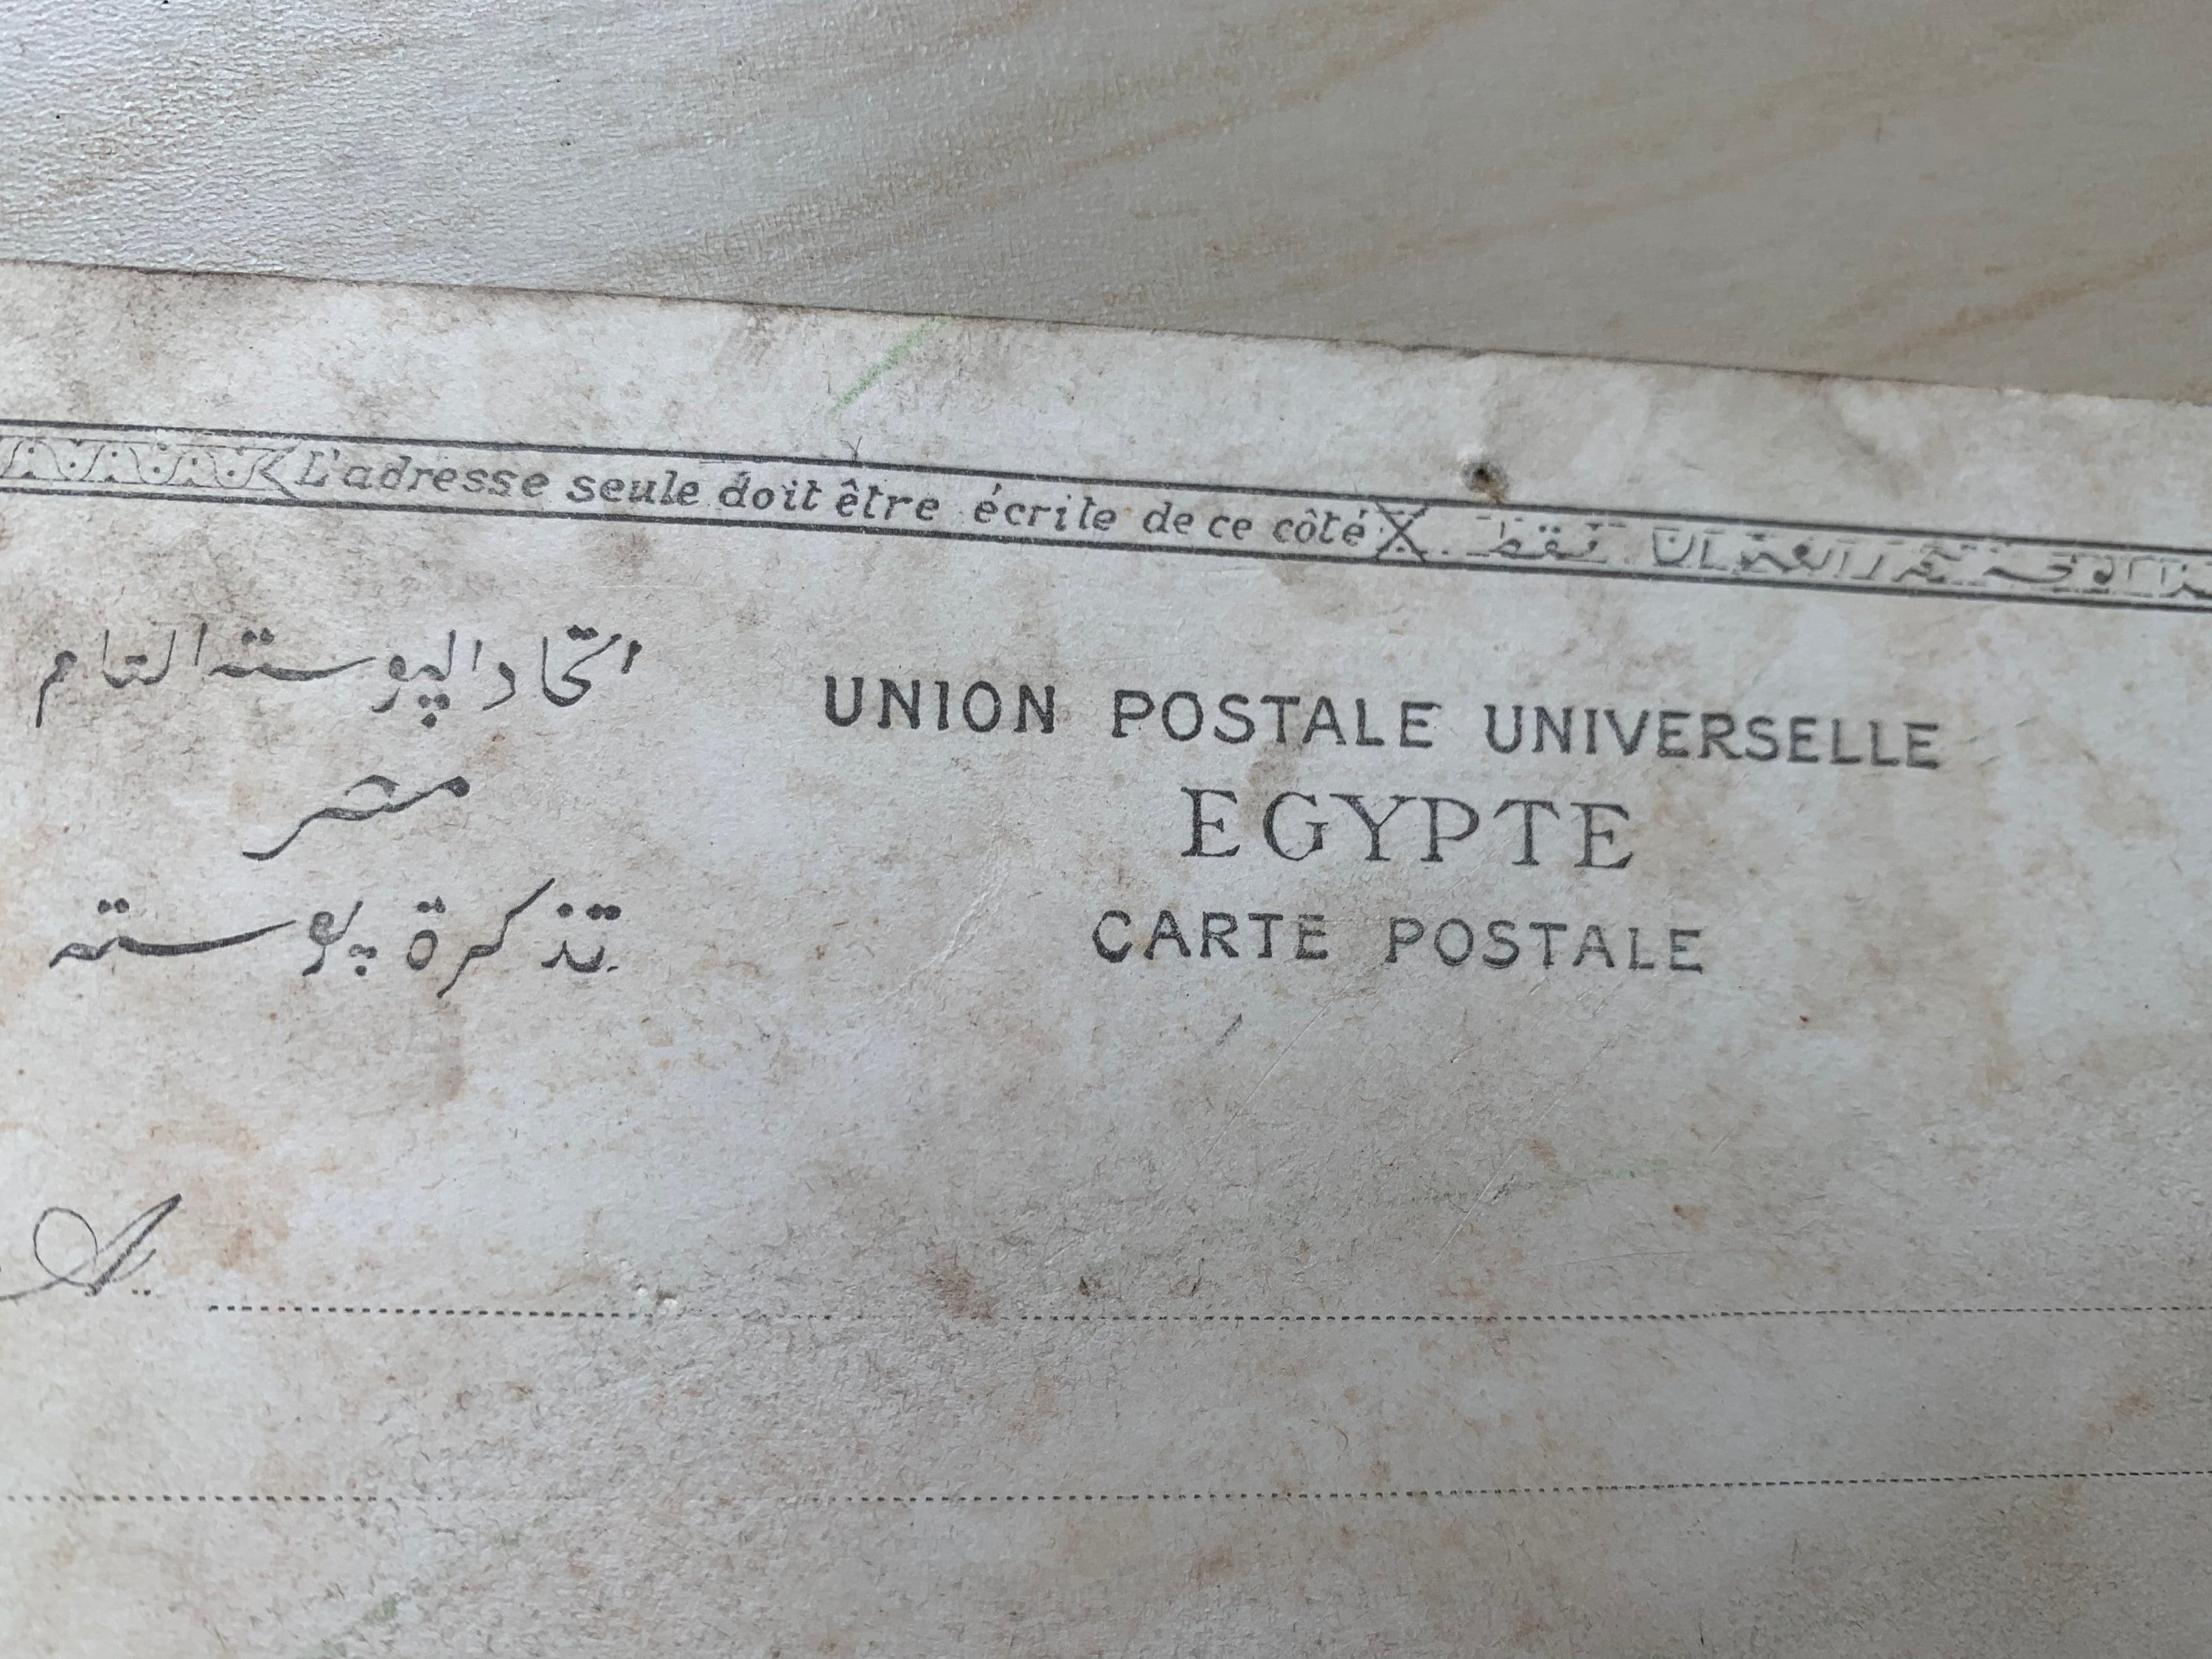 L'adresse seule doit être écrite de ce côté
العنوان فقط
اتحاد الپوسته التام
مصر
تذكرة پوسته
UNION POSTALE UNIVERSELLE
EGYPTE
CARTE POSTALE
A